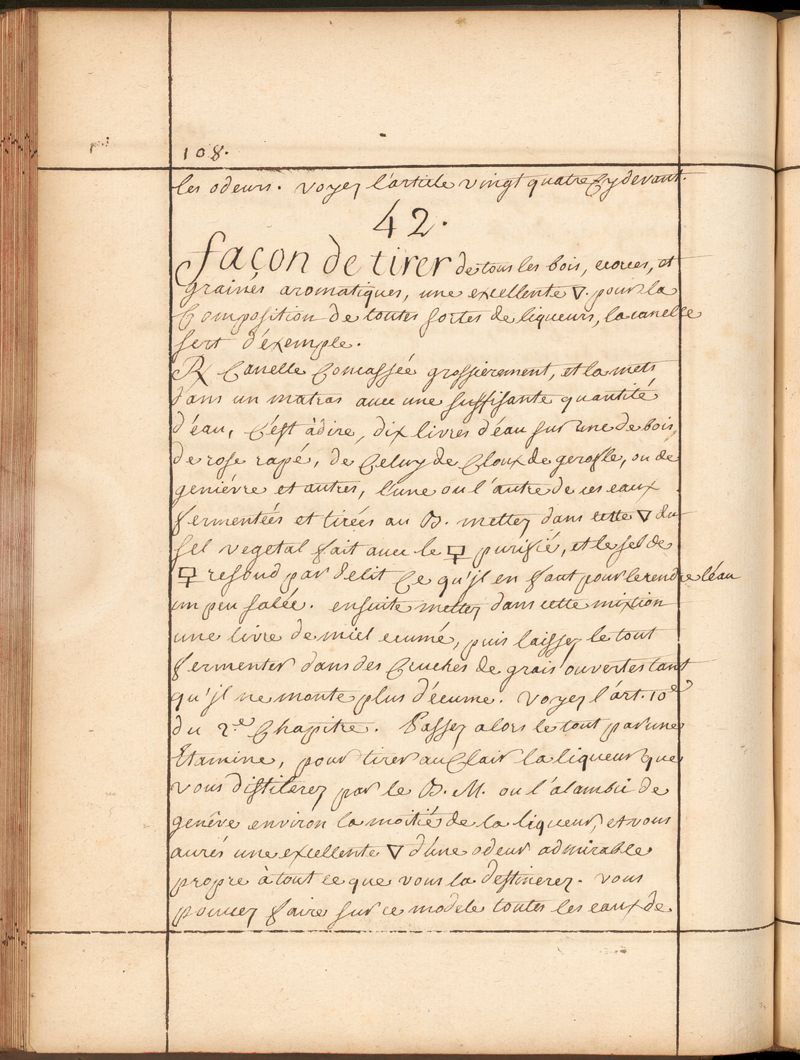 108.
les odeurs. voyez l'article vingt quatre cy devant.
42.
façon de tirer de tous les bois, ecorces, et
graines aromatiques, une excellente 🜄. pour la
Composition de toutes sortes de liqueurs, la canelle
sert d'éxemple.
℞ Canelle Concassée grossièrement, et la mets
dans un matras avec une suffisante quantité
d'éau, C'est àdire, dix livres d'éau sur une de bois
de rose rapé, de Celuy de Cloux de gerofle, ou de
geniévre et autres, l'une ou l'autre de ces eaux
fermentées et tirées au B. mettez dans cette 🜄 du
sel vegetal fait avec le 🜿 purifié, et le sel de
🜿 resoud par Delit Ce qu'jl en faut pour le rendre l'éau
un peu salée. ensuite mettez dans cette mixtion
une livre de miel ecumé, puis laissez le tout
fermenter dans des Cruches de grais ouvertes tant
qu'jl ne monte plus d'écume. voyez l'art. 10e
du 2.e Chapitre. Passez alors le tout par une
Etamine, pour tirer au Clair la liqueur que
vous distilerez par le B. M. ou l'alambic de
genêve environ la moitié de la liqueur, et vous
aurés une excellente 🜄 d'une odeur admirable
propre à tout ce que vous la destinerez. vous
pouvez faire sur ce modele toutes les eaux de